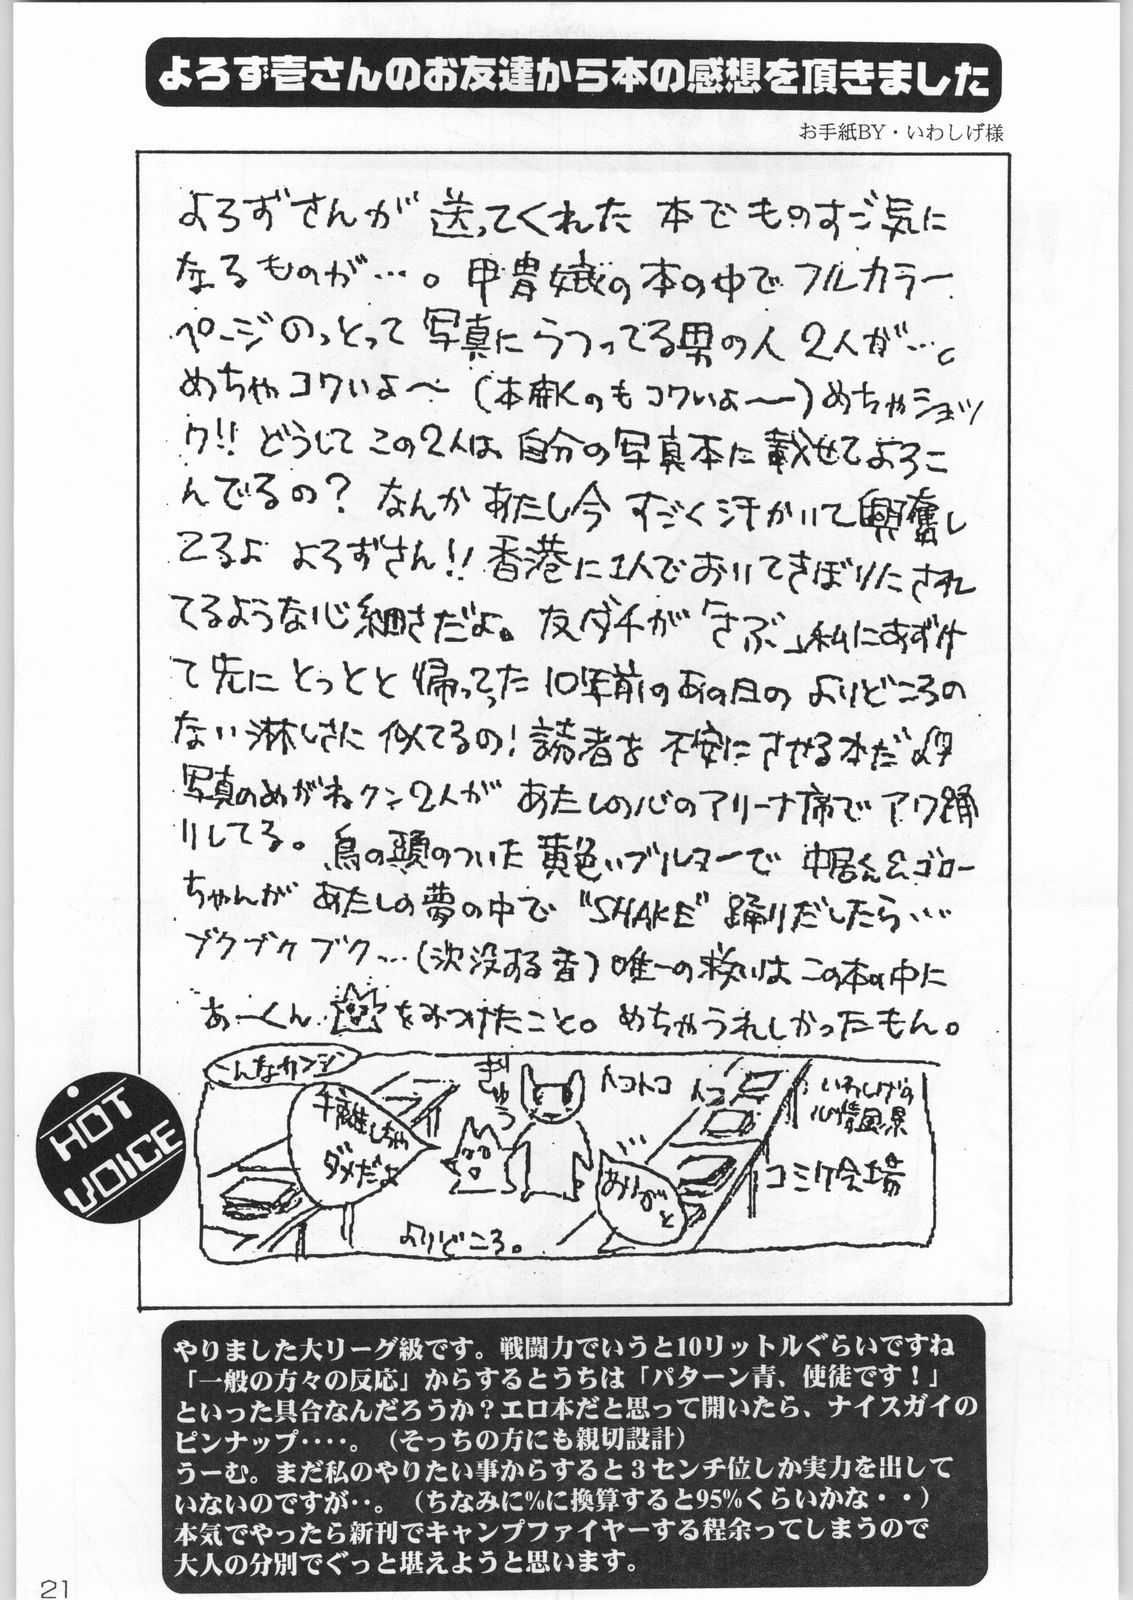 よろず壱さんのお友達から本の感想を頂きました
お手紙BY・いわしげ様
よろずさんが 送ってくれた 本で ものすご気に
なるものが…。甲冑娥の本の中で フルカラー
ページのっとって 写真に うつってる男の人 2人が…。
めちゃコワいよ〜 (本開くのも コワいよ〜)めちゃショッ
ク!! どうして この2人は 自分の写真本に 載せてよろこ
んでるの? なんか あたし今 すごく汗かいて興奮し
てるよ よろずさん!! 香港に1人でおいてきぼりにされ
てるような心細さだよ。友ダチが「さぶ」私にあずけ
て先に とっとと 帰ってった 10年前のあの日の よりどころの
ない淋しさに 似てるの! 読者を 不安にさせる本だ
写真のめがねクン2人が あたしの心のアリーナ席で アワ踊
りしてる。鳥の頭のついた 黄色いブルマーで 中居くん&ゴロー
ちゃんが あたしの夢の中で "SHAKE" 踊りだしたら…
ブクブクブク…(沈没する音) 唯一の救いは この本の中に
あーくん をみつけたこと。めちゃうれしかったもん。
こんなカンジ
手離しちゃ
ダメだよ
ぎゅう
トコトコ
トコ
ありがと
よりどころ。
いわしげの
心情風景
コミケ会場
HOT
VOICE
やりました大リーグ級です。戦闘力でいうと10リットルぐらいですね
「一般の方々の反応」からするとうちは「パターン青、使徒です！」
といった具合なんだろうか？エロ本だと思って開いたら、ナイスガイの
ピンナップ‥‥。（そっちの方にも親切設計）
うーむ。まだ私のやりたい事からすると３センチ位しか実力を出して
いないのですが‥。（ちなみに%に換算すると95%くらいかな・・）
本気でやったら新刊でキャンプファイヤーする程余ってしまうので
大人の分別でぐっと堪えようと思います。
21